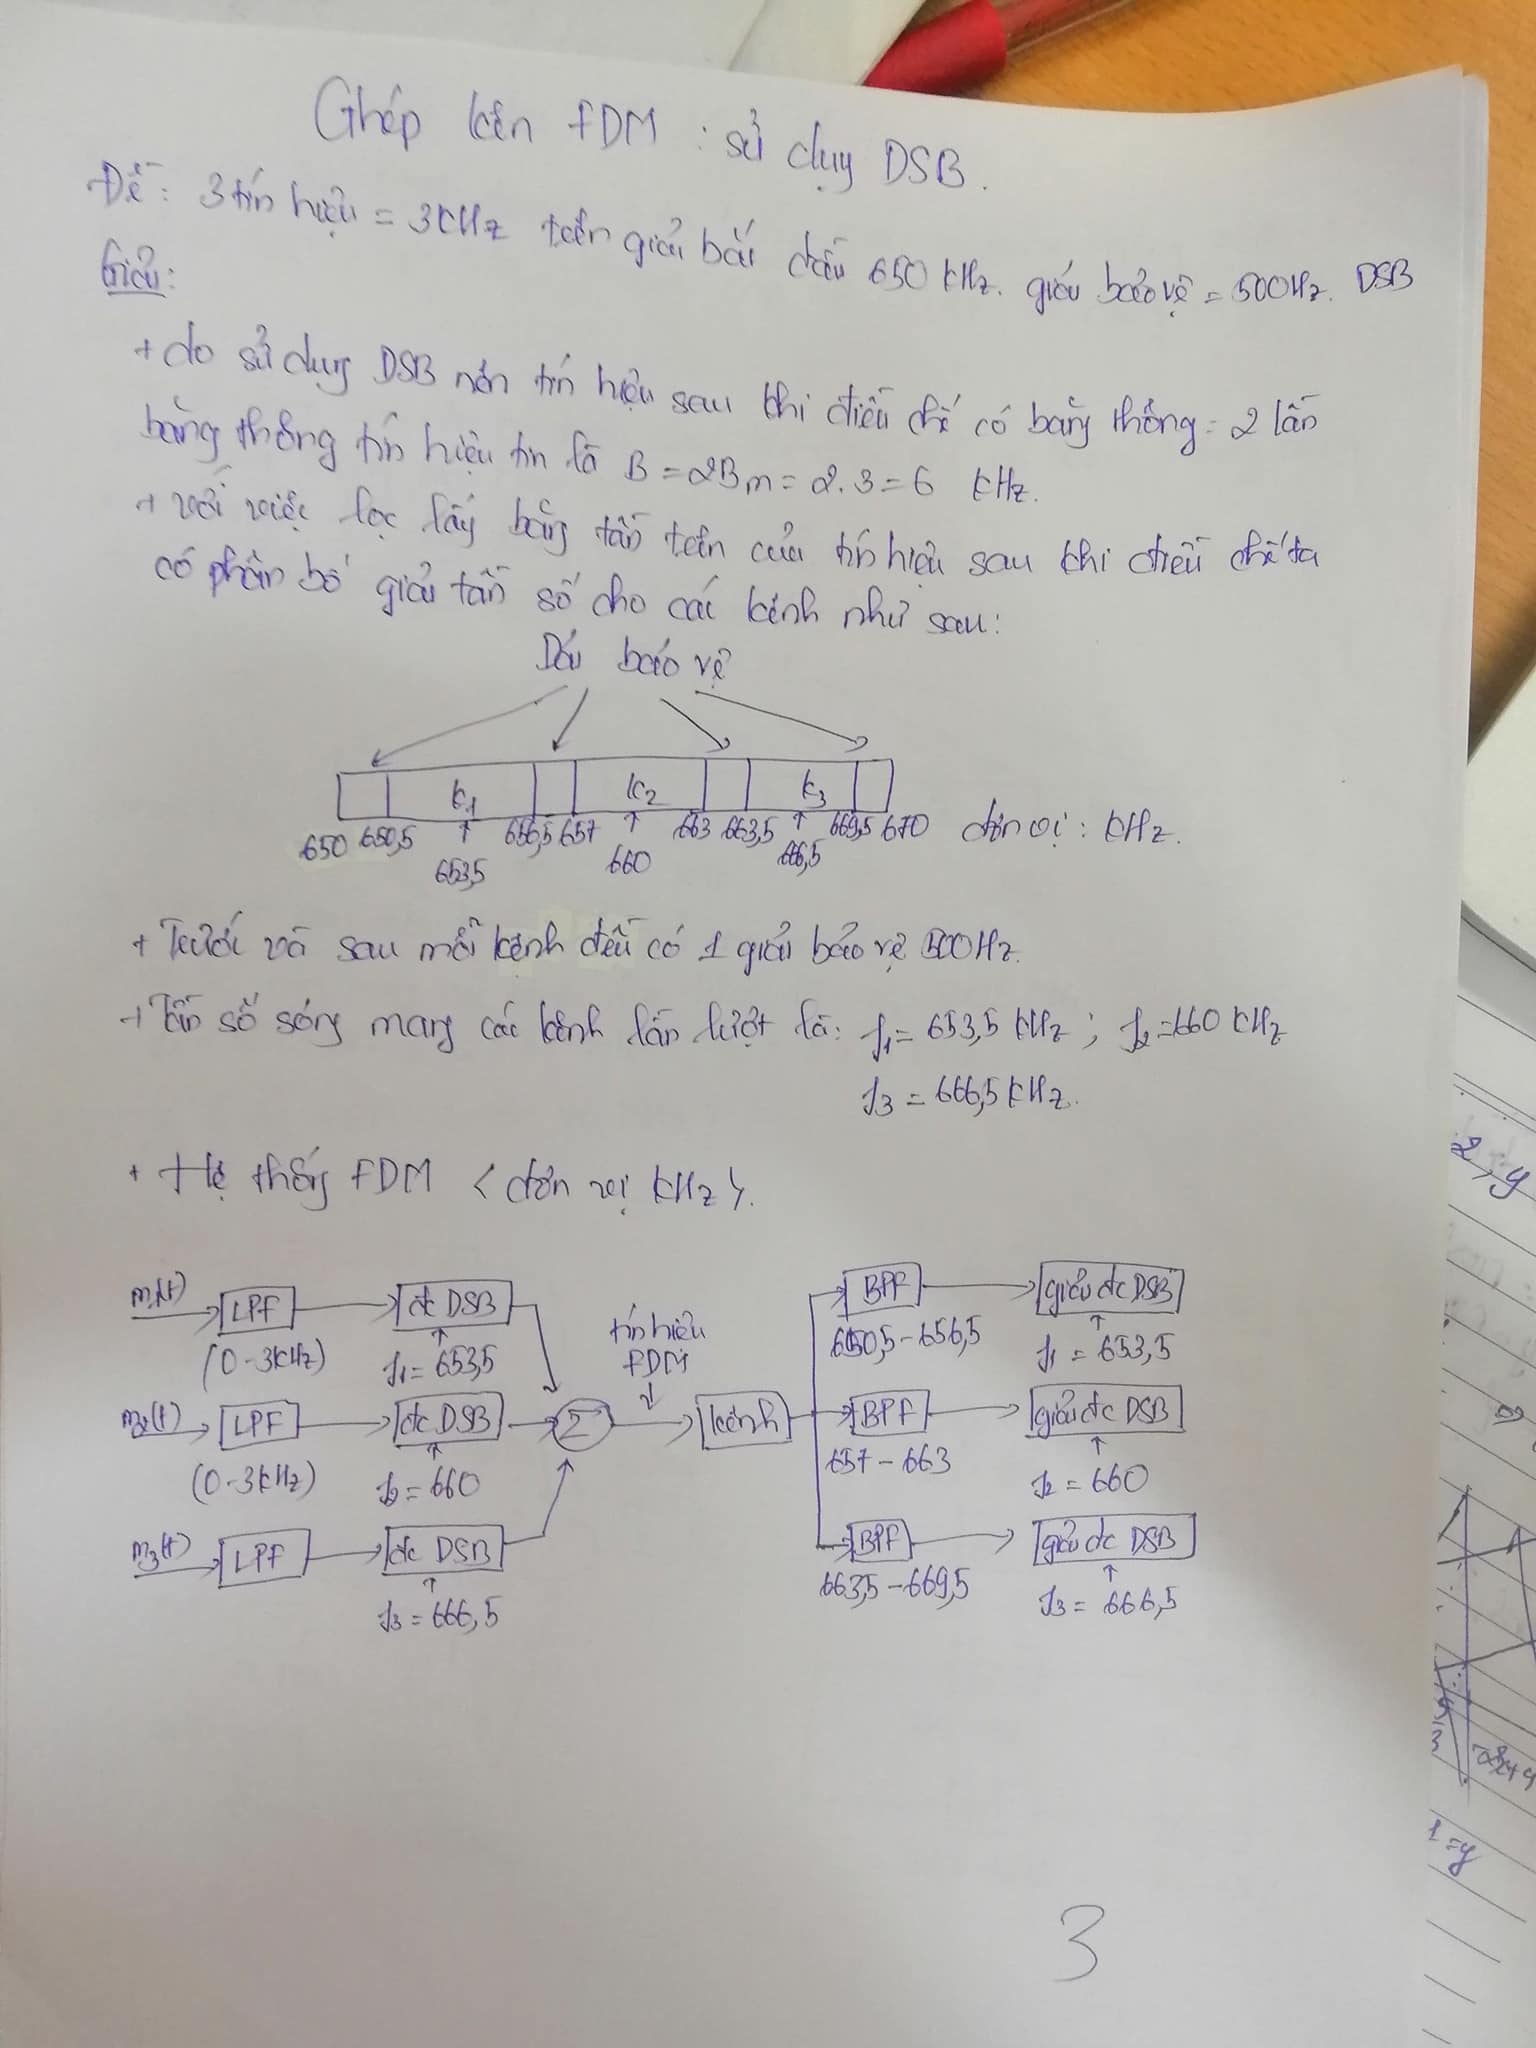 Ghép kên FDM : sử dụng DSB.
Đề: 3 tín hiệu = 3KHz trên giải bắt đầu 650 KHz. giải bảo vệ = 500Hz. DSB
Giải:
+ do sử dụng DSB nên tín hiệu sau khi điều chế có băng thông = 2 lần
băng thông tín hiệu tin là B = 2Bm = 2.3 = 6 KHz.
+ với việc lọc lấy băng tần trên của tín hiệu sau khi điều chế ta
có phân bố giải tần số cho các kênh như sau:
Dải bảo vệ
K1 K2 K3
650 650,5 656,5 657 663 663,5 669,5 670 đơn vị : KHz.
653,5 660 666,5
+ Trước và sau mỗi kênh đều có 1 giải bảo vệ 500Hz.
+ Tần số sóng mang các kênh lần lượt là: f1 = 653,5 KHz ; f2 = 660 KHz
f3 = 666,5 KHz.
+ Hệ thống FDM < đơn vị KHz >.
m1(t) LPF đc DSB BPF giải đc DSB
(0-3KHz) f1 = 653,5 tín hiệu FDM 650,5 - 656,5 f1 = 653,5
m2(t) LPF đc DSB Σ kênh BPF giải đc DSB
(0-3KHz) f2 = 660 657 - 663 f2 = 660
m3(t) LPF đc DSB BPF giải đc DSB
f3 = 666,5 663,5 - 669,5 f3 = 666,5
3
1 = y